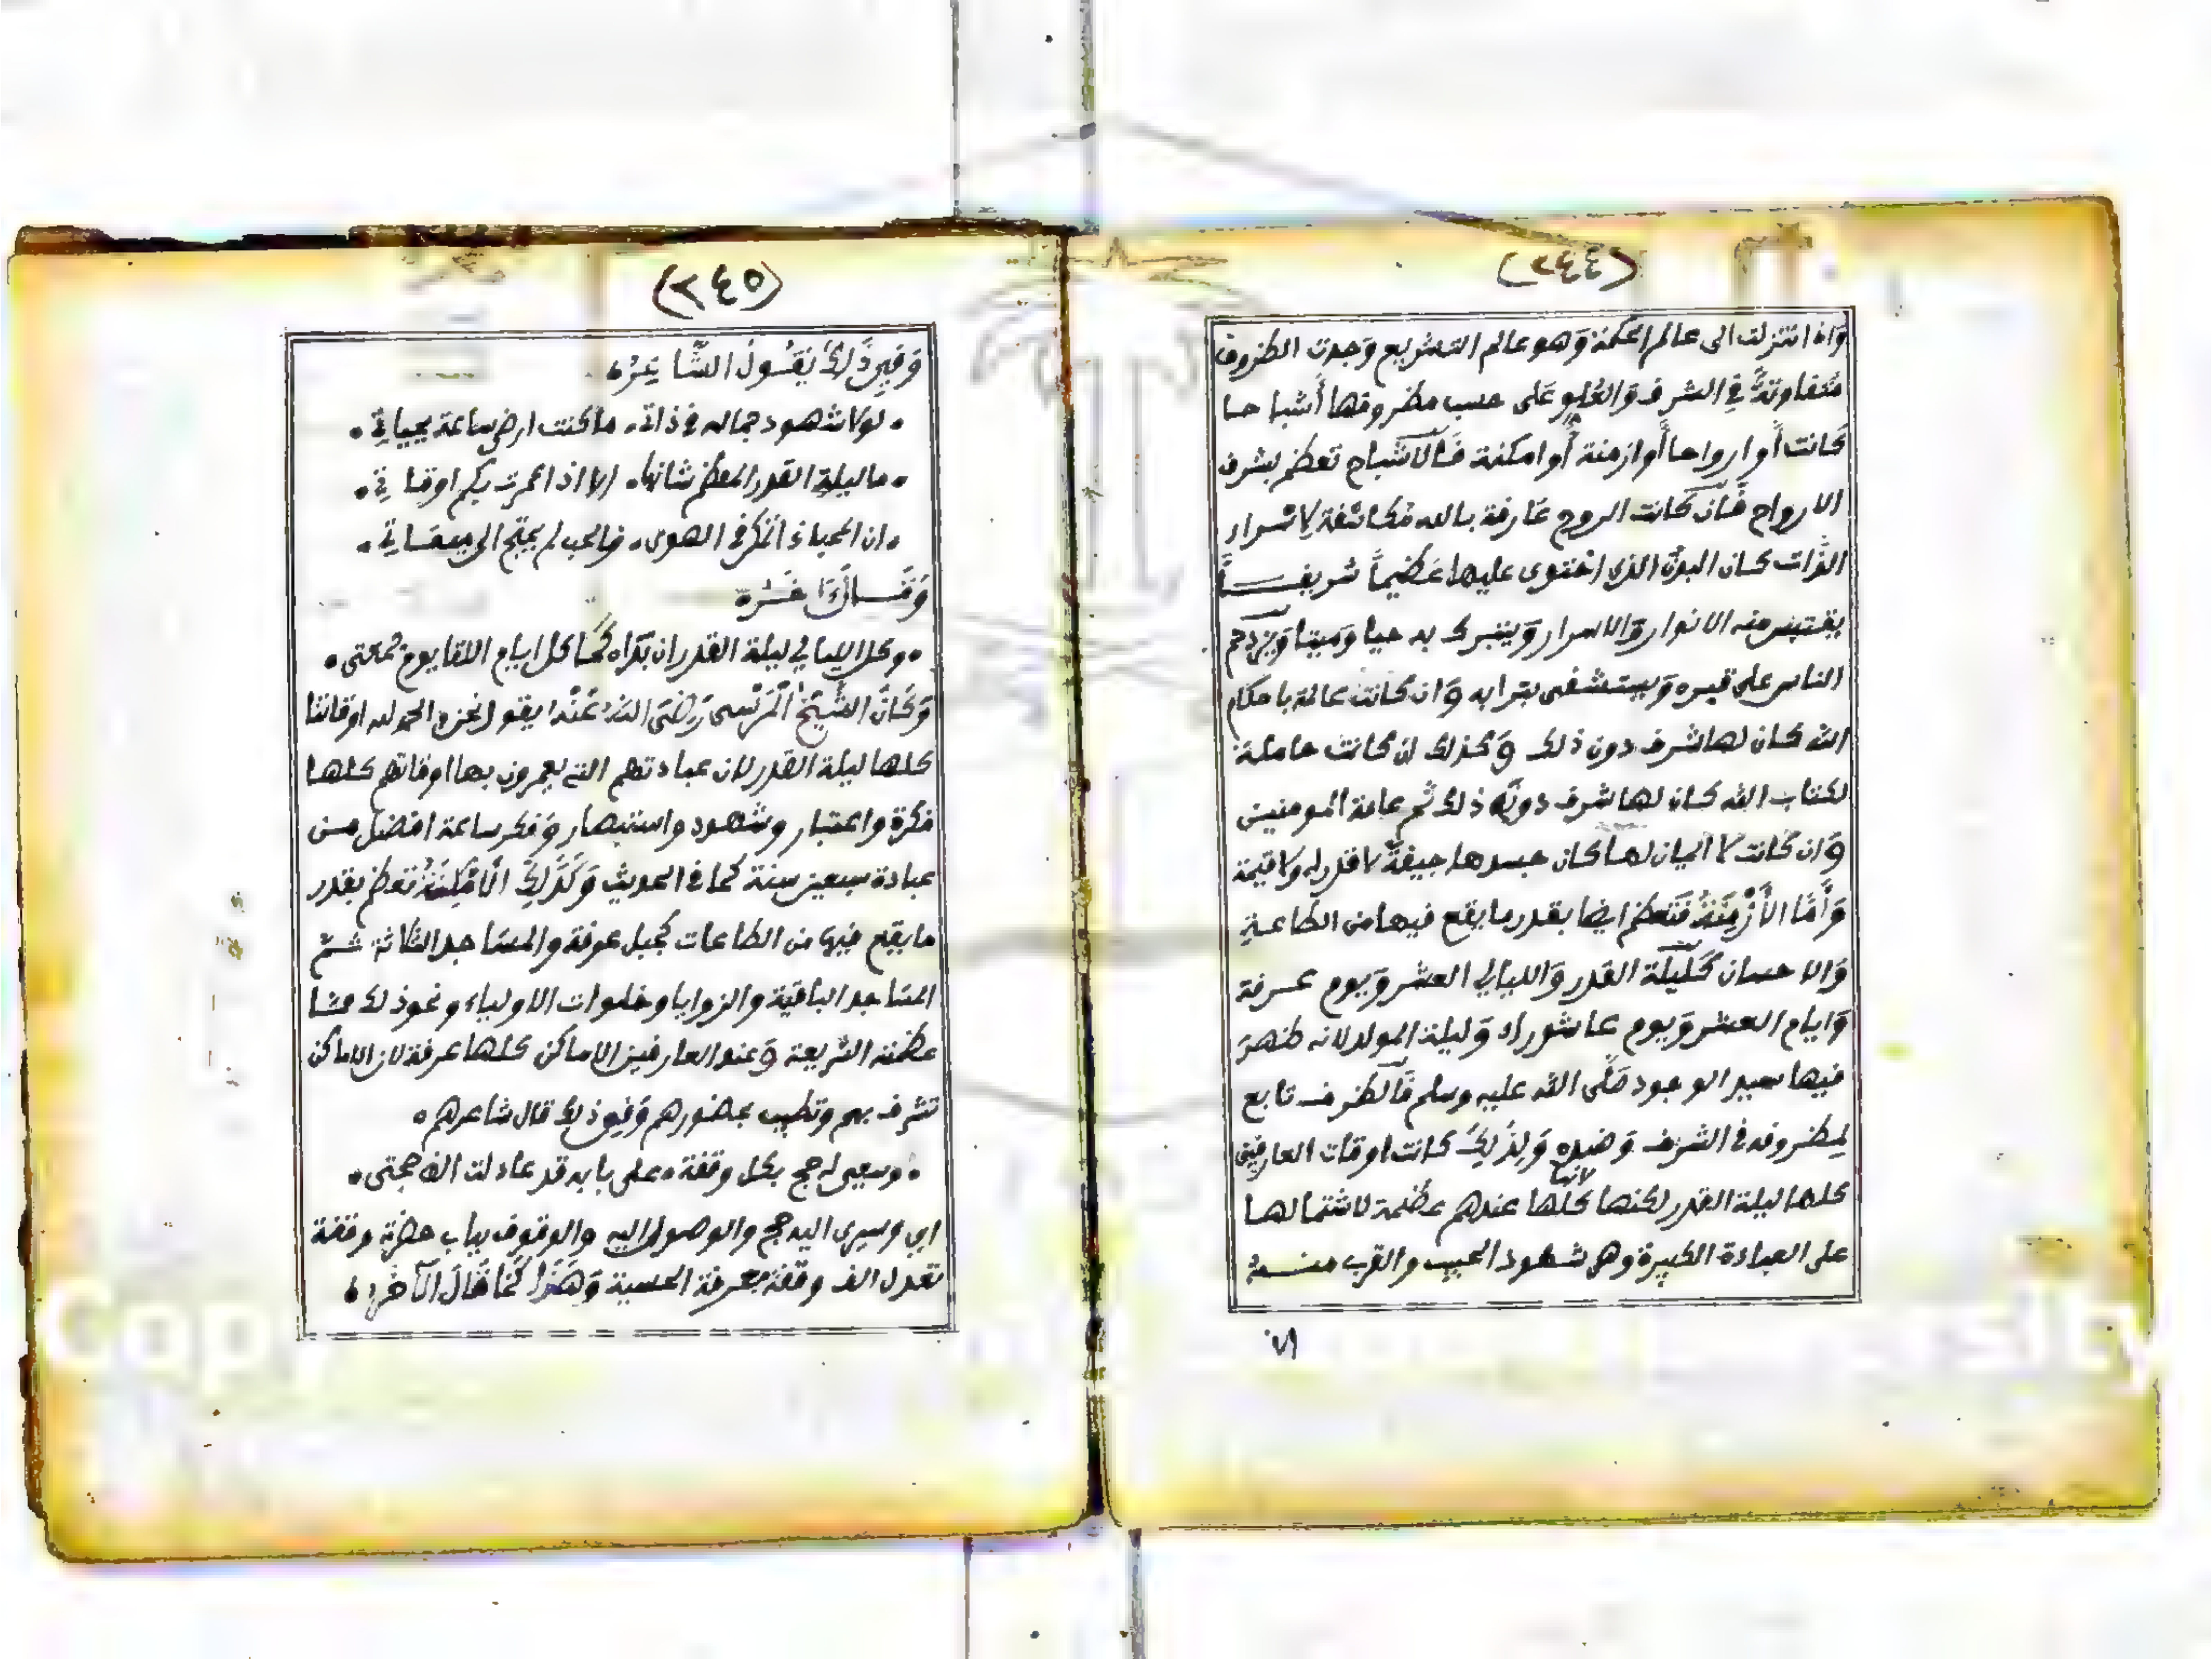 (٢٤٤)
وَاذا تنزلت الى عالم الحكمة وَهو عالم التشريع وَجدت الظروف
متفاوتةً في الشرف وَالعُلو عَلى حسب مظروفها أشبا حا
كَانت أوا رواحا أوازمنة أوامكنة فَالاشباح تعظم بشرف
الارواح فَان كانت الروح عَارفة بالله مُكاشفة لاسرار
الذات كان البدن الذي احتوى عليها عَظيماً شريفــاً
يقتبس منه الانوار وَالاسرار وَيتبرك به حيا وَميتا وَيزدحم
الناس على قبره وَيستشفى بترابه وَان كانت عالمة باحكام
الله كان لها شرف دون ذلك وَكذلك ان كانت حاملة
لكتاب الله كان لها شرف دون ذلك ثم عامة المومنين
وَان كانت لا ايمان لها كان جسدها جيفةً لا قدر له ولا قيمة
وَأَمَّا الأَزْمِنَةُ فَتعظم ايضا بقدر ما يقع فيها من الطاعـةِ
وَالاحسان كَليلة القدر وَالليالي العشر وَيوم عـرفة
وَايام العشر وَيوم عاشوراء وَليلة المولد لانه ظهرَ
فيها سيد الوجود صَلَّى الله عليه وسلم فَالظرف تابع
لمظروفه في الشرف وَضده وَلِذَلِكَ كانت اوقات العارفين
كلها ليلة القدر لكنها كلها عندهم عظيمة لاشتمالها
لانها
على العبادة الكبيرة وهى شهود الحبيب والقرب منــه
(٢٤٥)
وَفيِ ذَلِكَ يَقُـولُ الشَّا عِرُ
لولا شهود جماله في ذاتي ماكنت ارضى ساعة بحياتي
ما ليلة القدر المعظم شانها الا اذا عمرت بكم اوقا تي
ان المحب اذا تمكن في الهوى والحب لم يحتج الى ميقاتي
وَقَــالَ آخَــرُ
وكل الليالي ليلة القدر ان بَدَا كَمَا كل ايام اللقا يوم جُمعتى
وَكَانَ الشَّيخُ الْمَرْسى رَضىَ اللهُ عَنْهُ يقول نحن والحمد لله اوقاتنا
كلها ليلة القدر لان عبادتهم التي يعمرون بها اوقاتهم كلها
فكرة واعتبار وشهود واستبصار وَفكر ساعة افضل مـن
عبادة سبعين سنة كما في الحديث وَكَذَلِكَ الأَمْكِنَةُ تعظم بقدر
ما يقع فيها من الطاعات كجبل عرفة والمسَاجد الثلاثة ثـمّ
المسَاجد الباقية والزوايا وخلوات الاولياء ونحو ذلك ممّـا
عظمته الشريعة وَعند العارفين الاماكن كلها عرفة لان الاماكن
تشرف بهم وتطيب بحضورهم وَفيِ ذلِكَ قال شاعرهم
وسعيى له حج بكل وقفة على بابه قد عادلت الف حجتى
اي وسيرى اليه حج والوصول اليه والوقوف بباب حضرته وقفة
تعدل الف وقفة بعرفة الحسية وَهَذَا كَمَا قَالَ الآخَرُ